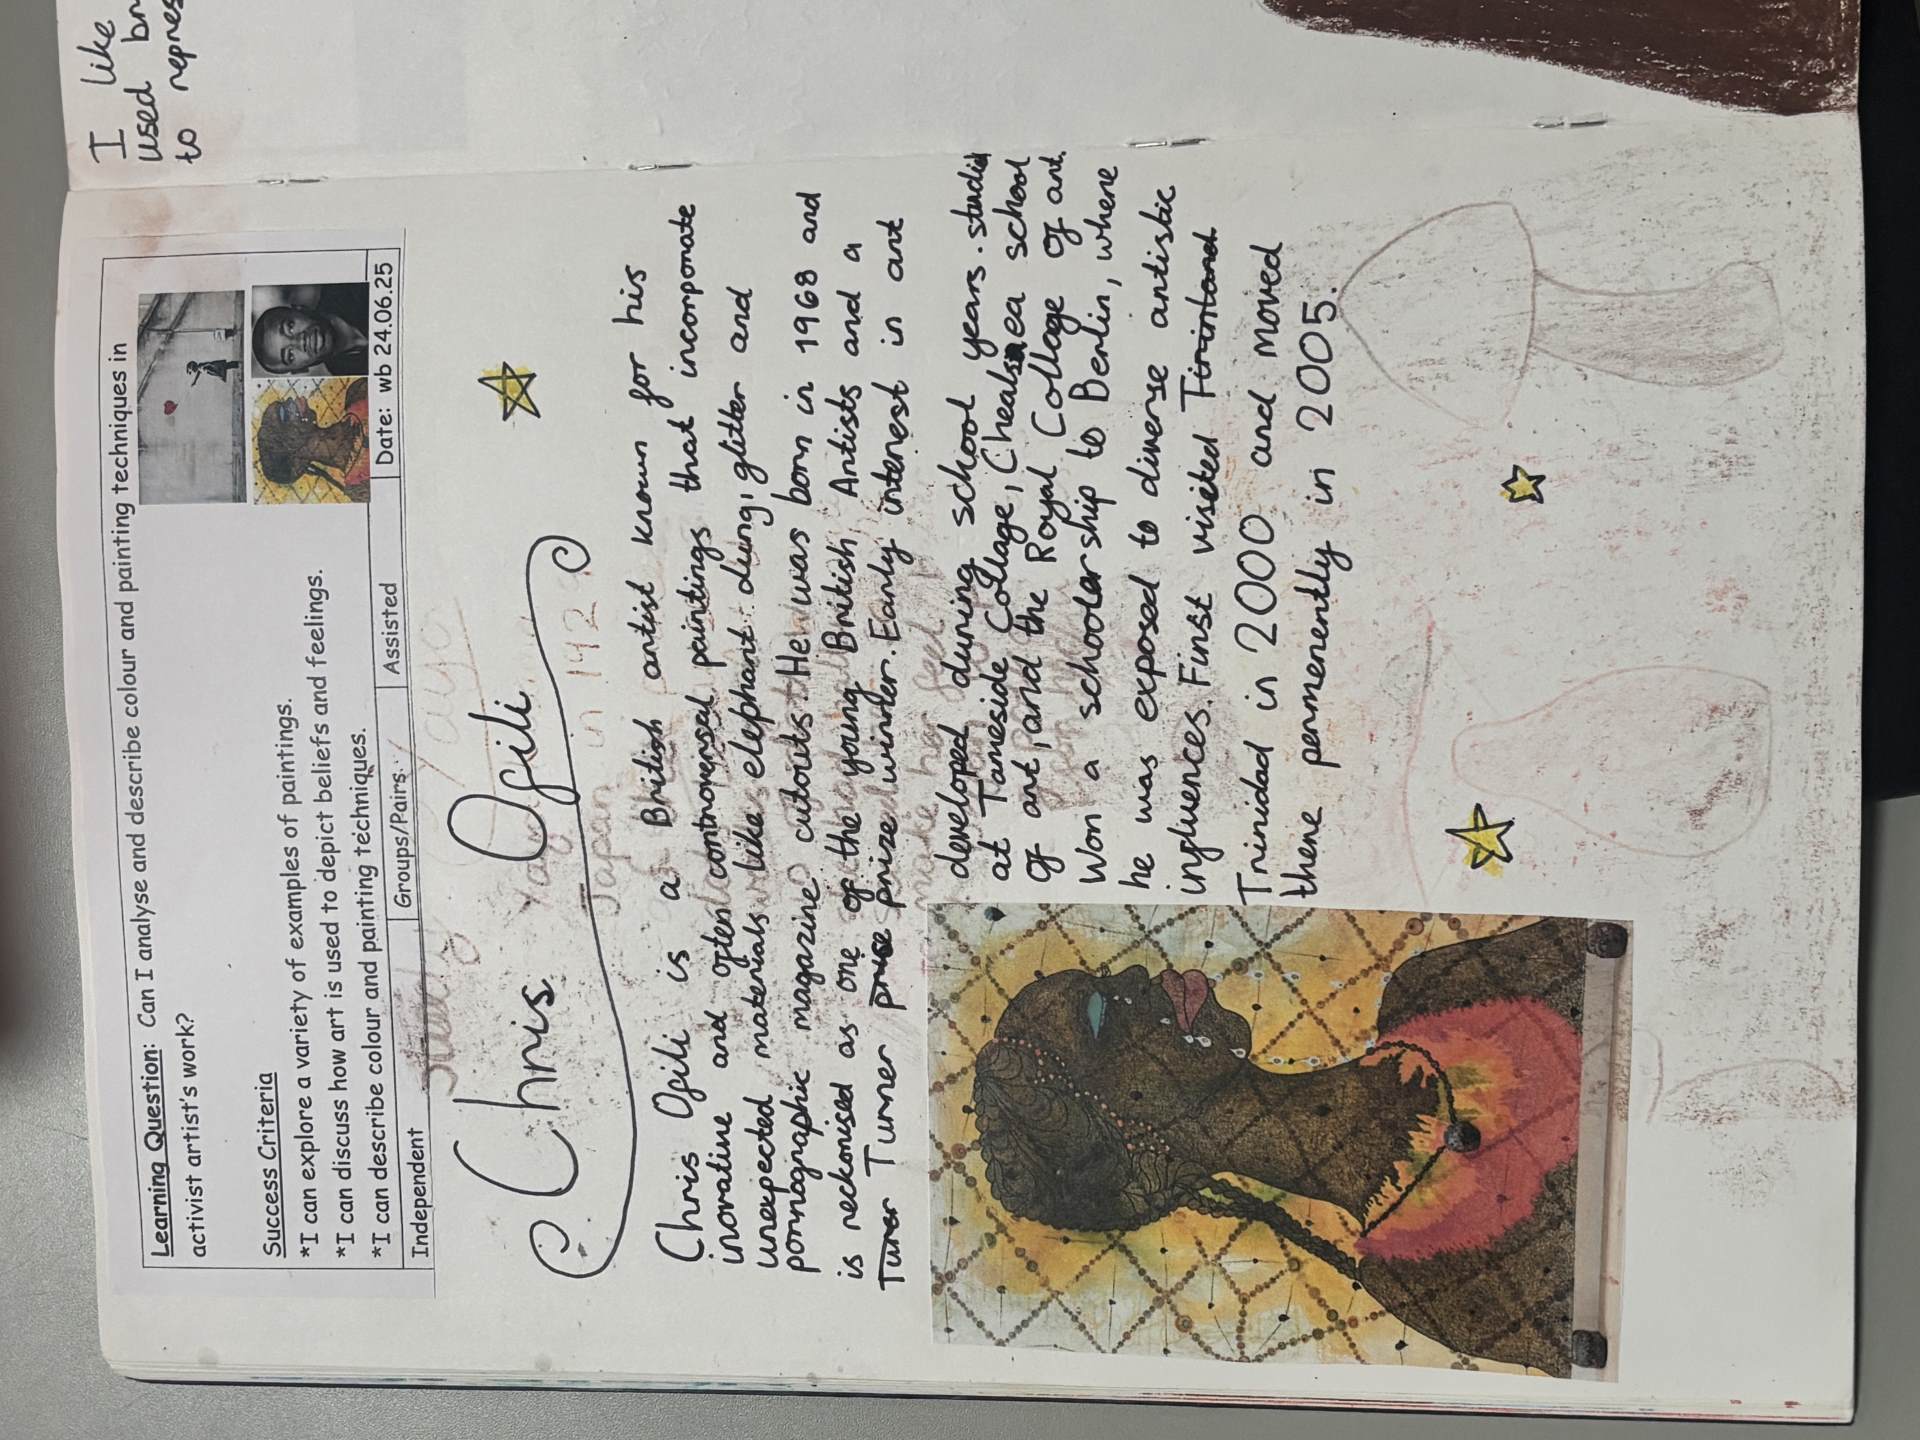 Learning Question: Can I analyse and describe colour and painting techniques in
activist artist's work?
Success Criteria
*I can explore a variety of examples of paintings.
*I can discuss how art is used to depict beliefs and feelings.
*I can describe colour and painting techniques.
Independent
Groups/Pairs
Assisted
Date: wb 24.06.25
Chris Ofili
Chris Ofili is a British artist known for his
inovative and often controversal paintings that incorporate
unexpected materials like elephant dung, glitter and
pornographic magazine cutouts. He was born in 1968 and
is reckonised as one of the young British Artists and a
Turner prize winner. Early interest in art
developed during school years. studid
at Tameside Collage, Chealsea school
of art, and the Royal Collage of art.
Won a schoolership to Berlin, where
he was exposed to diverse artistic
influences. First visited
Trinidad in 2000 and moved
there permenently in 2005.
I like
used br
to repres